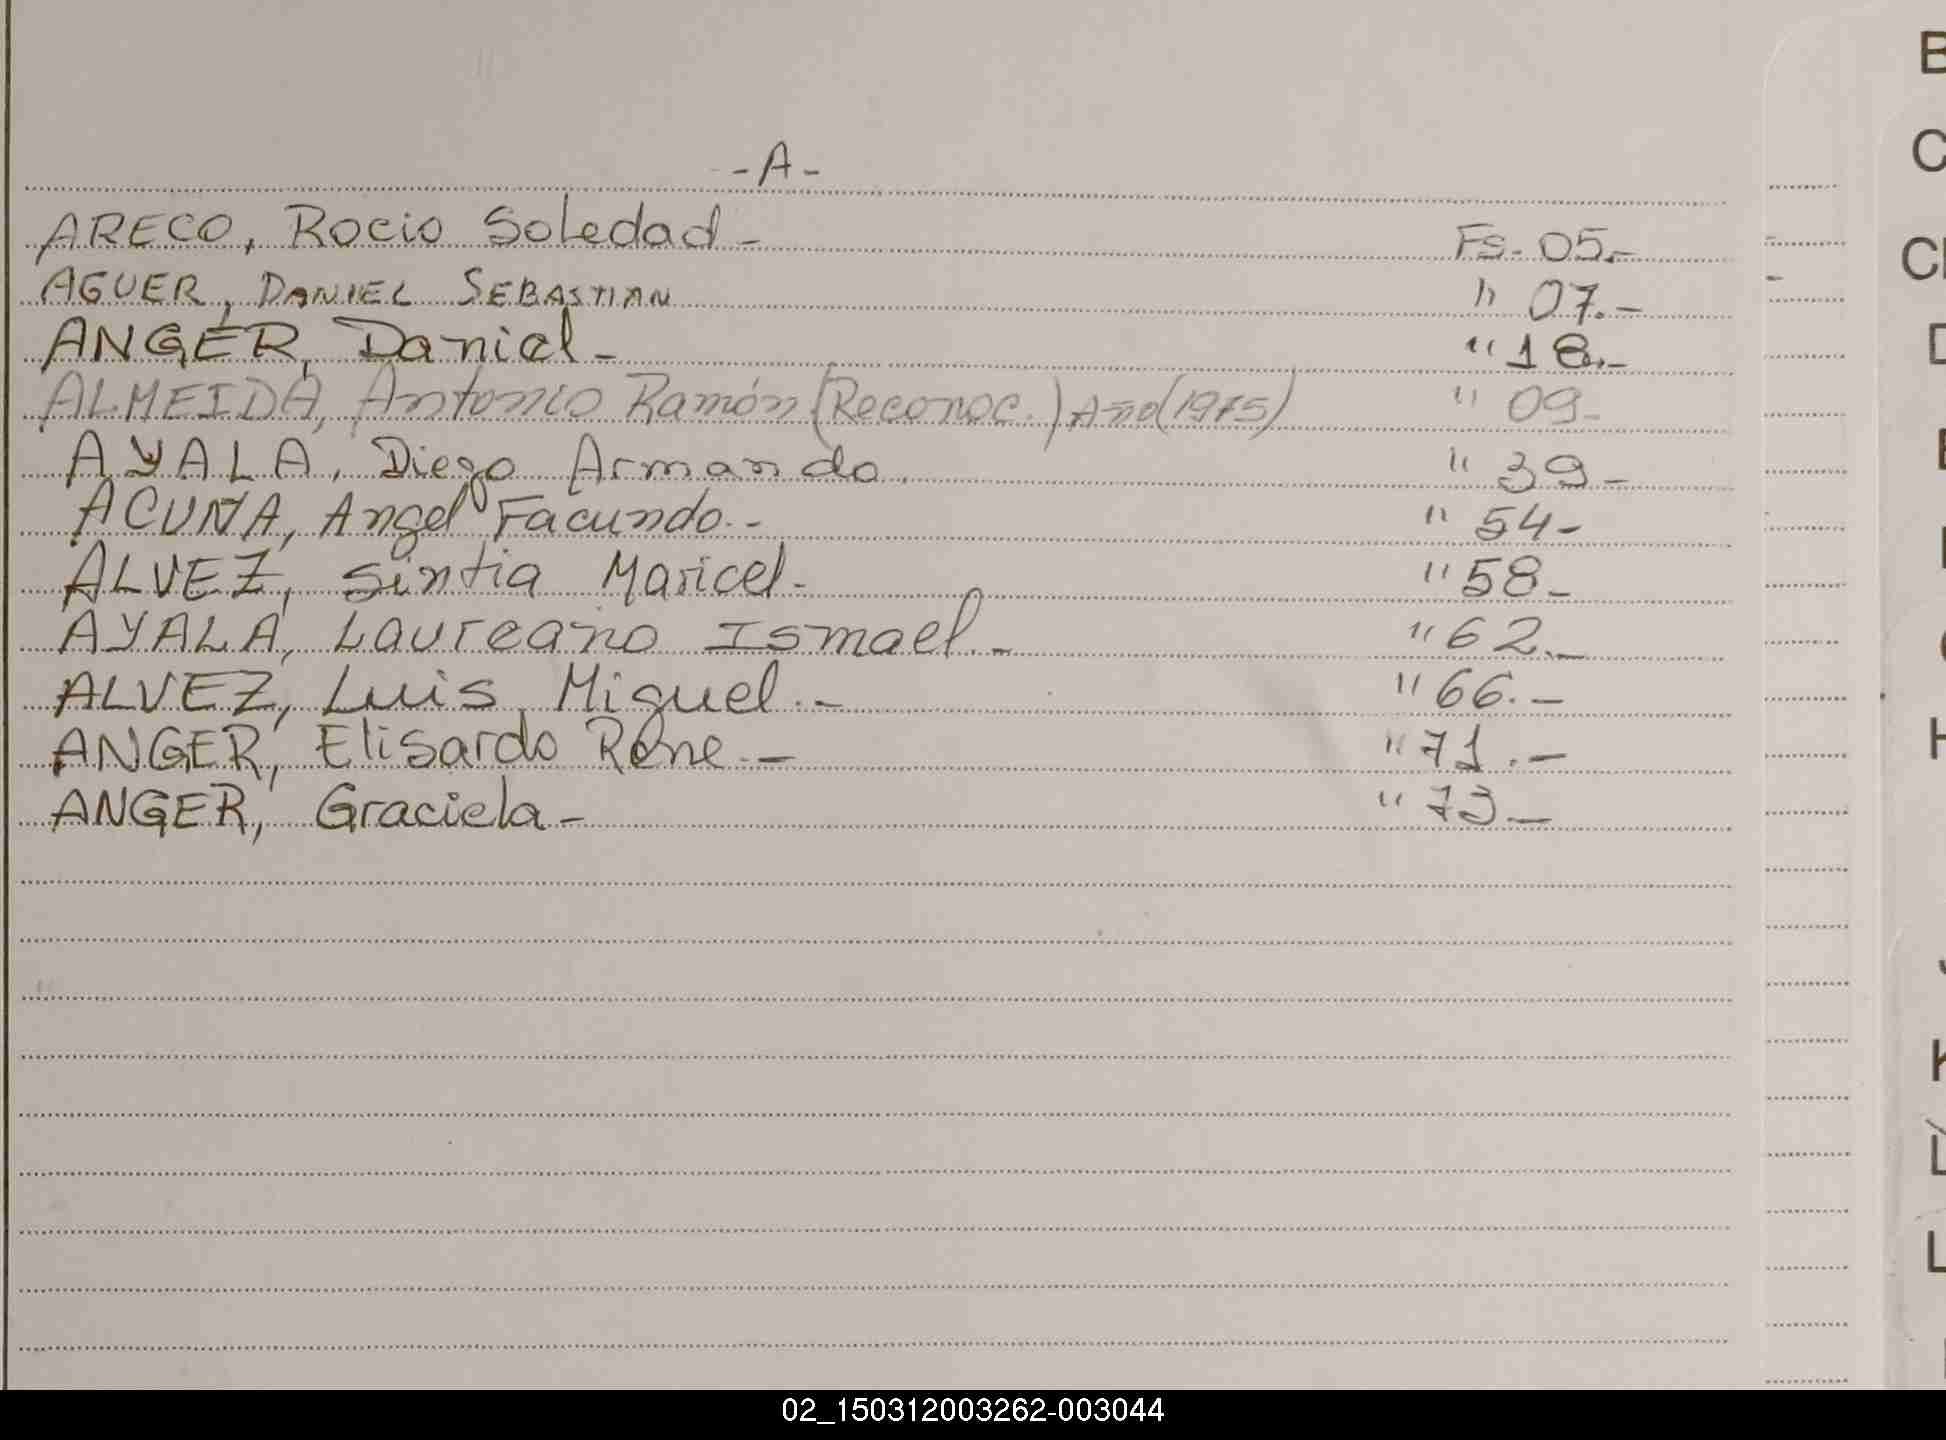 -A-
ARECO, Rocio Soledad - Fs. 05.-
AGUER, DANIEL SEBASTIAN " 07.-
ANGER, Daniel - " 18.-
ALMEIDA, Antonio Ramón (Reconoc.) Año (1975) " 09-
AYALA, Diego Armando. " 39-
ACUÑA, Angel Facundo.- " 54-
ALVEZ, Sintia Maricel- " 58-
AYALA, Laureano Ismael.- " 62.-
ALVEZ, Luis Miguel.- " 66.-
ANGER, Elisardo Rene.- " 71.-
ANGER, Graciela- " 73-
C
H
L
02_150312003262-003044